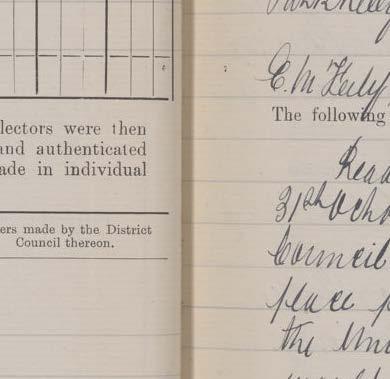 lectors were then
and authenticated
ade in individual
ers made by the District
Council thereon.
The following
Read
31st Octo
Council
place
the